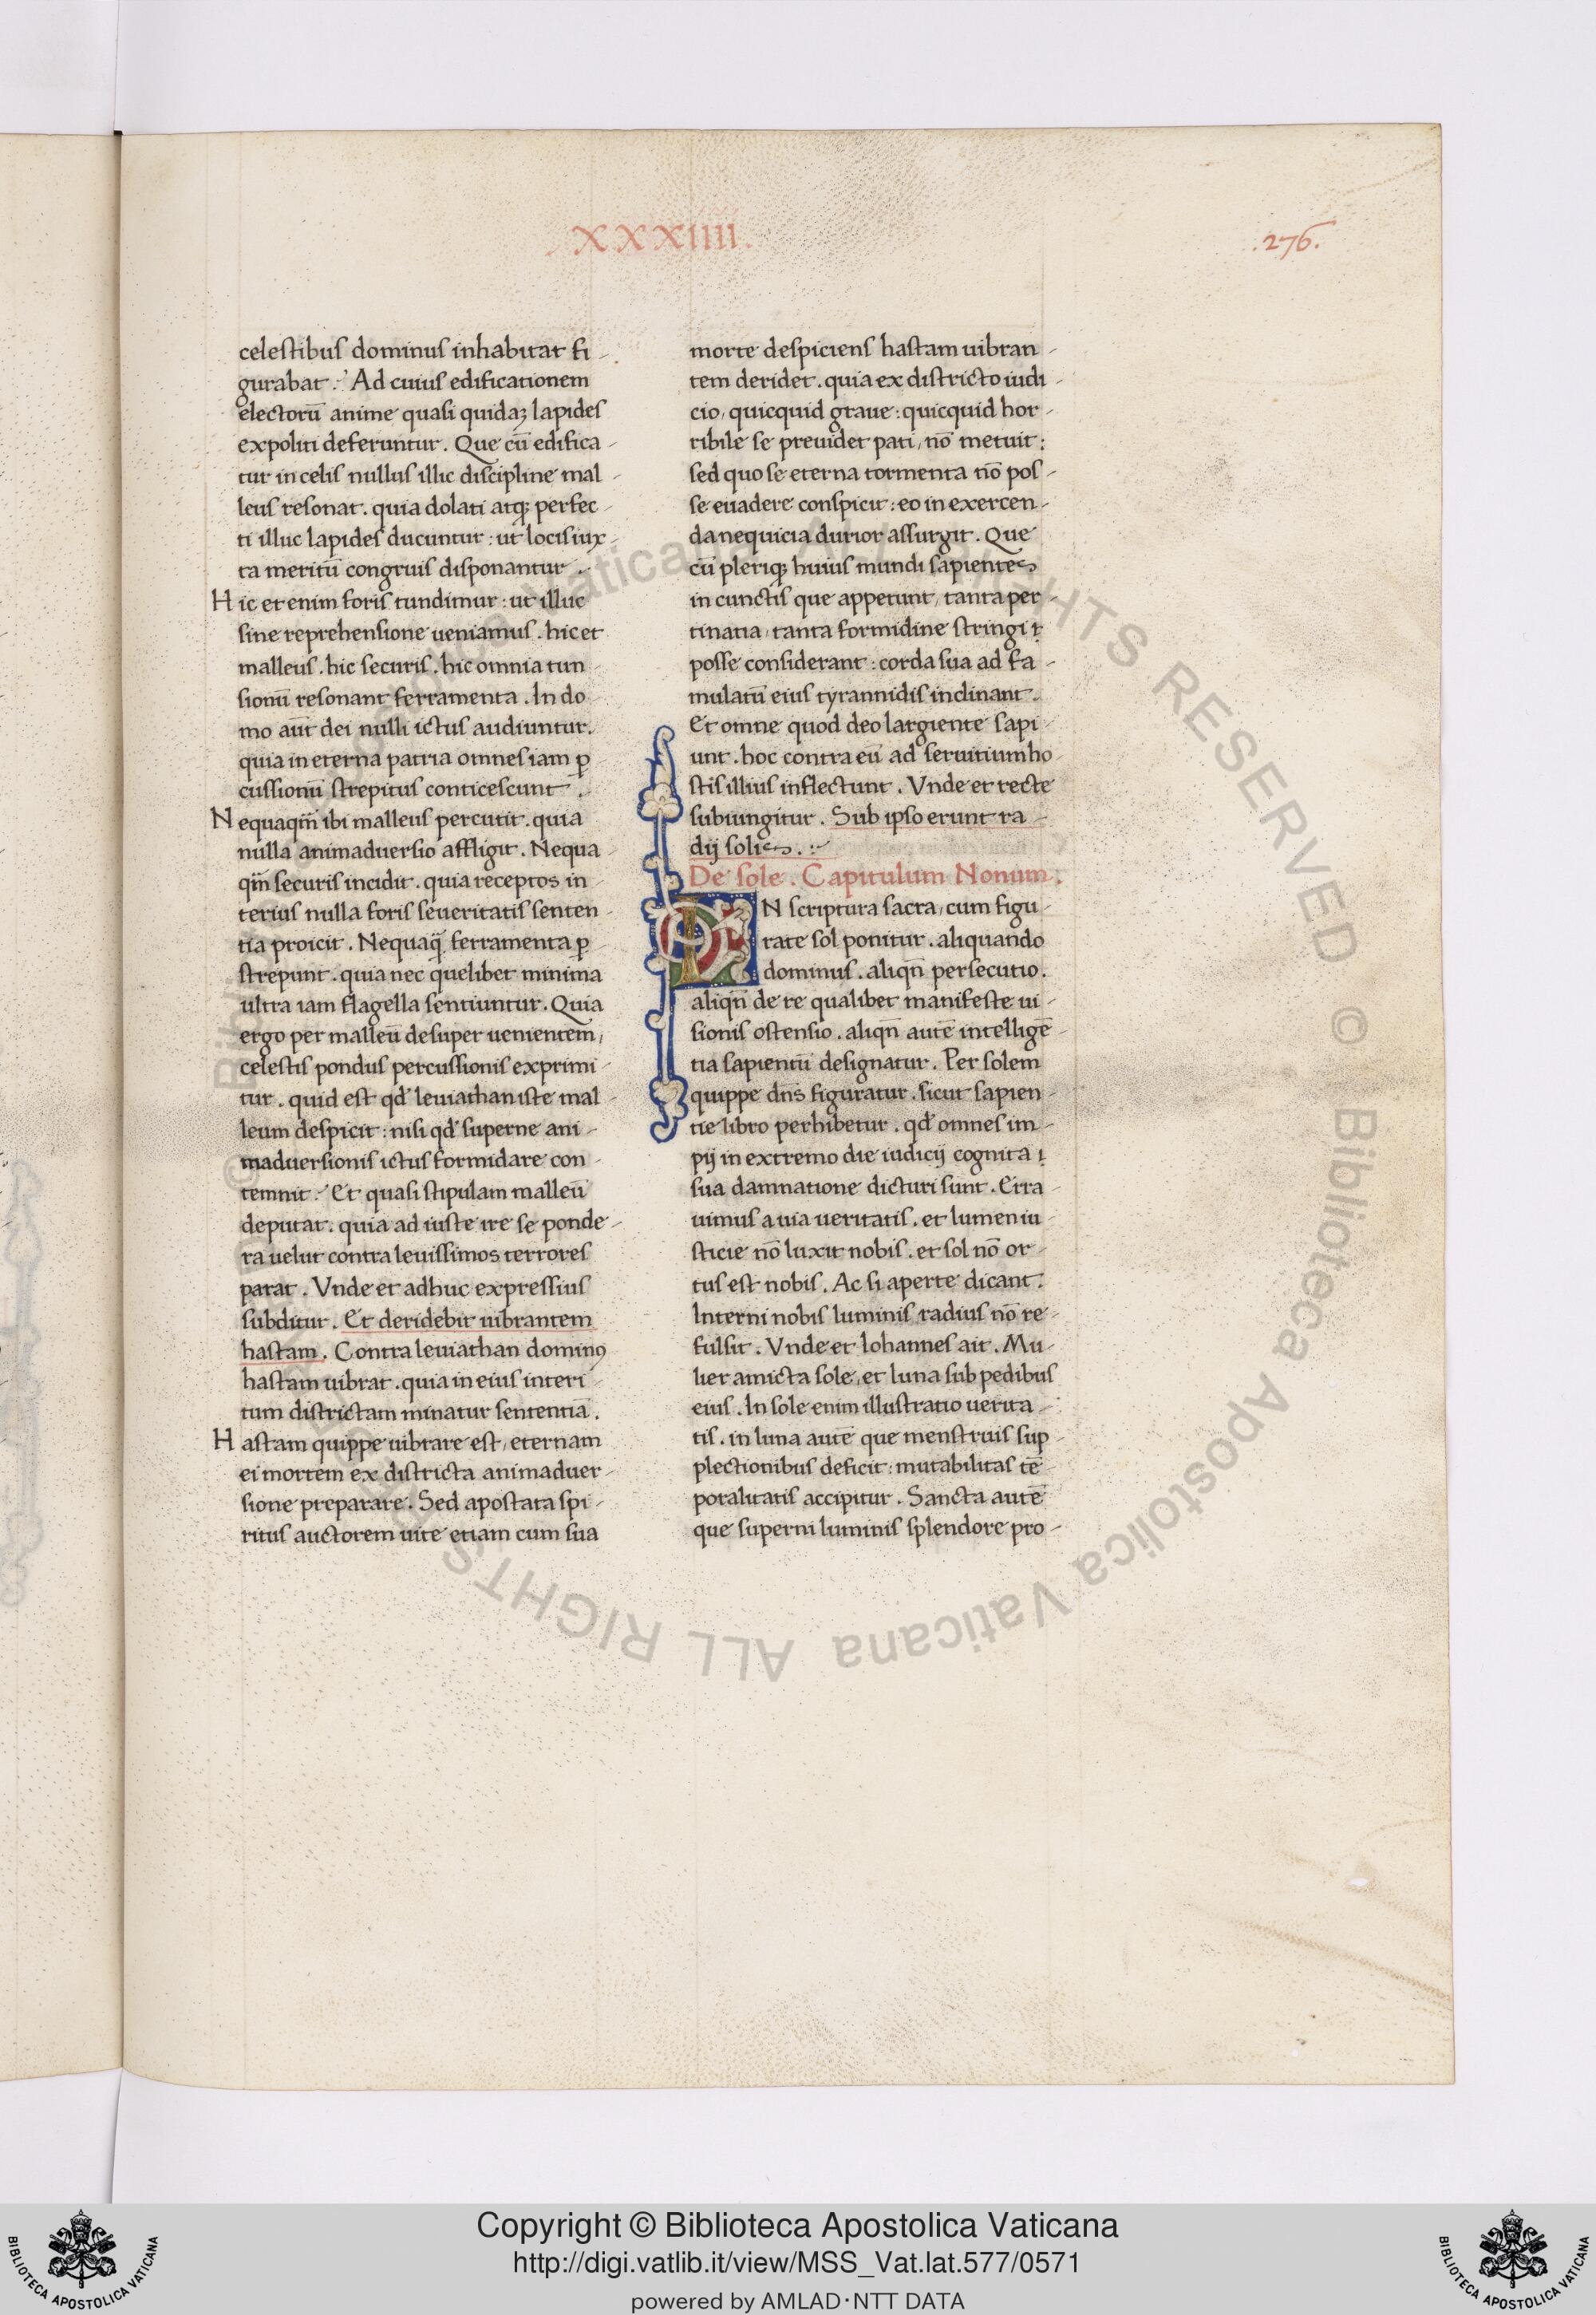 .XXXIIII.
.276.
celestibus dominus inhabitat fi-
gurabat. Ad cuius edificationem
electorū anime quasi quidaꝫ lapides
expoliti deferuntur. Que cū edifica-
tur in celis nullus illic discipline mal-
leus resonat. quia dolati atqꝫ perfec-
ti illuc lapides ducuntur: ut locis iux-
ta meritū congruis disponantur.
Hic et enim foris tundimur: ut illuc
sine reprehensione ueniamus. hic et
malleus. hic securis. hic omnia tun
sionū resonant ferramenta. In do
mo aut̄ dei nulli ictus audiuntur.
quia in eterna patria omnes iam ꝑ
cussionū strepitus conticescunt.
Nequaqm̄ ibi malleus percutit. quia
nulla animaduersio affligit. Nequa-
qm̄ securis incidit. quia receptos in-
terius nulla foris seueritatis senten-
tia proicit. Nequaq̄ ferramenta ꝑ
strepunt. quia nec quelibet minima
ultra iam flagella sentiuntur. Quia
ergo per malleū desuper uenientem,
celestis pondus percussionis exprimi-
tur. quid est qd' leuiathan iste mal-
leum despicit: nisi qd' superne ani-
maduersionis ictus formidare con-
temnit. Et quasi stipulam malleū
deputat. quia ad iuste ire se ponde-
ra uelut contra leuissimos terrores
parat. Vnde et adhuc expressius
subditur. Et deridebit uibrantem
hastam. Contra leuiathan dominꝰ
hastam uibrat. quia in eius interi-
tum districtam minatur sententiā.
Hastam quippe uibrare est, eternam
ei mortem ex districta animaduer-
sione preparare. Sed apostata spi-
ritus auctorem uite etiam cum sua
morte despiciens hastam uibran-
tem deridet. quia ex districto iudi-
cio, quicquid graue: quicquid hor-
ribile se preuidet pati, nō metuit:
sed quo se eterna tormenta nō pos-
se euadere conspicit: eo in exercen-
da nequicia durior assurgit. Que
cū pleriqꝫ huius mundi sapientes
in cunctis que appetunt, tanta per-
tinatia, tanta formidine stringi ꝉ
posse considerant: corda sua ad fa-
mulatū eius tyrannidis inclinant.
Et omne quod deo largiente sapi-
unt. hoc contra eū ad seruitium ho-
stis illius inflectunt. Vnde et recte
subiungitur. Sub ipso erunt ra-
dij solis.
De sole. Capitulum Nonum.
IN scriptura sacra, cum figu-
rate sol ponitur. aliquando
dominus. aliqn̄ persecutio.
aliqn̄ de re qualibet manifeste ui-
sionis ostensio. aliqn̄ autē intelligē-
tia sapientū designatur. Per solem
quippe dn̄s figuratur. sicut sapien-
tie libro perhibetur. qd' omnes im-
pij in extremo die iudicij cognita ı
sua damnatione dicturi sunt. Erra-
uimus a uia ueritatis. et lumen iu-
sticie nō luxit nobis. et sol nō or-
tus est nobis. Ac si aperte dicant.
Interni nobis luminis radius nō re-
fulsit. Vnde et Iohannes ait. Mu-
lier amicta sole, et luna sub pedibus
eius. In sole enim illustratio uerita-
tis. in luna autē que menstruis sup-
plectionibus deficit: mutabilitas tē-
poralitatis accipitur. Sancta autē
que superni luminis splendore pro-
© Biblioteca Apostolica Vaticana ALL RIGHTS RESERVED © Biblioteca Apostolica Vaticana ALL RIGHTS RESERVED
Copyright © Biblioteca Apostolica Vaticana
http://digi.vatlib.it/view/MSS_Vat.lat.577/0571
powered by AMLAD·NTT DATA
BIBLIOTECA APOSTOLICA VATICANA
BIBLIOTECA APOSTOLICA VATICANA